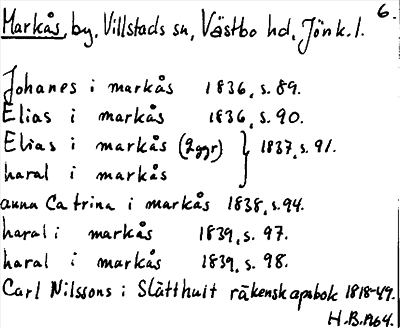 6.
Markås, by, Villstads sn, Västbo hd, Jönk.l.
Johanes i markås 1836, s. 89.
Elias i markås 1836, s. 90.
Elias i markås (2ggr) } 1837, s. 91.
haral i markås
anna Catrina i markås 1838, s. 94.
haral i markås 1839, s. 97.
haral i markås 1839, s. 98.
Carl Nilssons i Slätthult räkenskapsbok 1818-49.
H.B.A64.